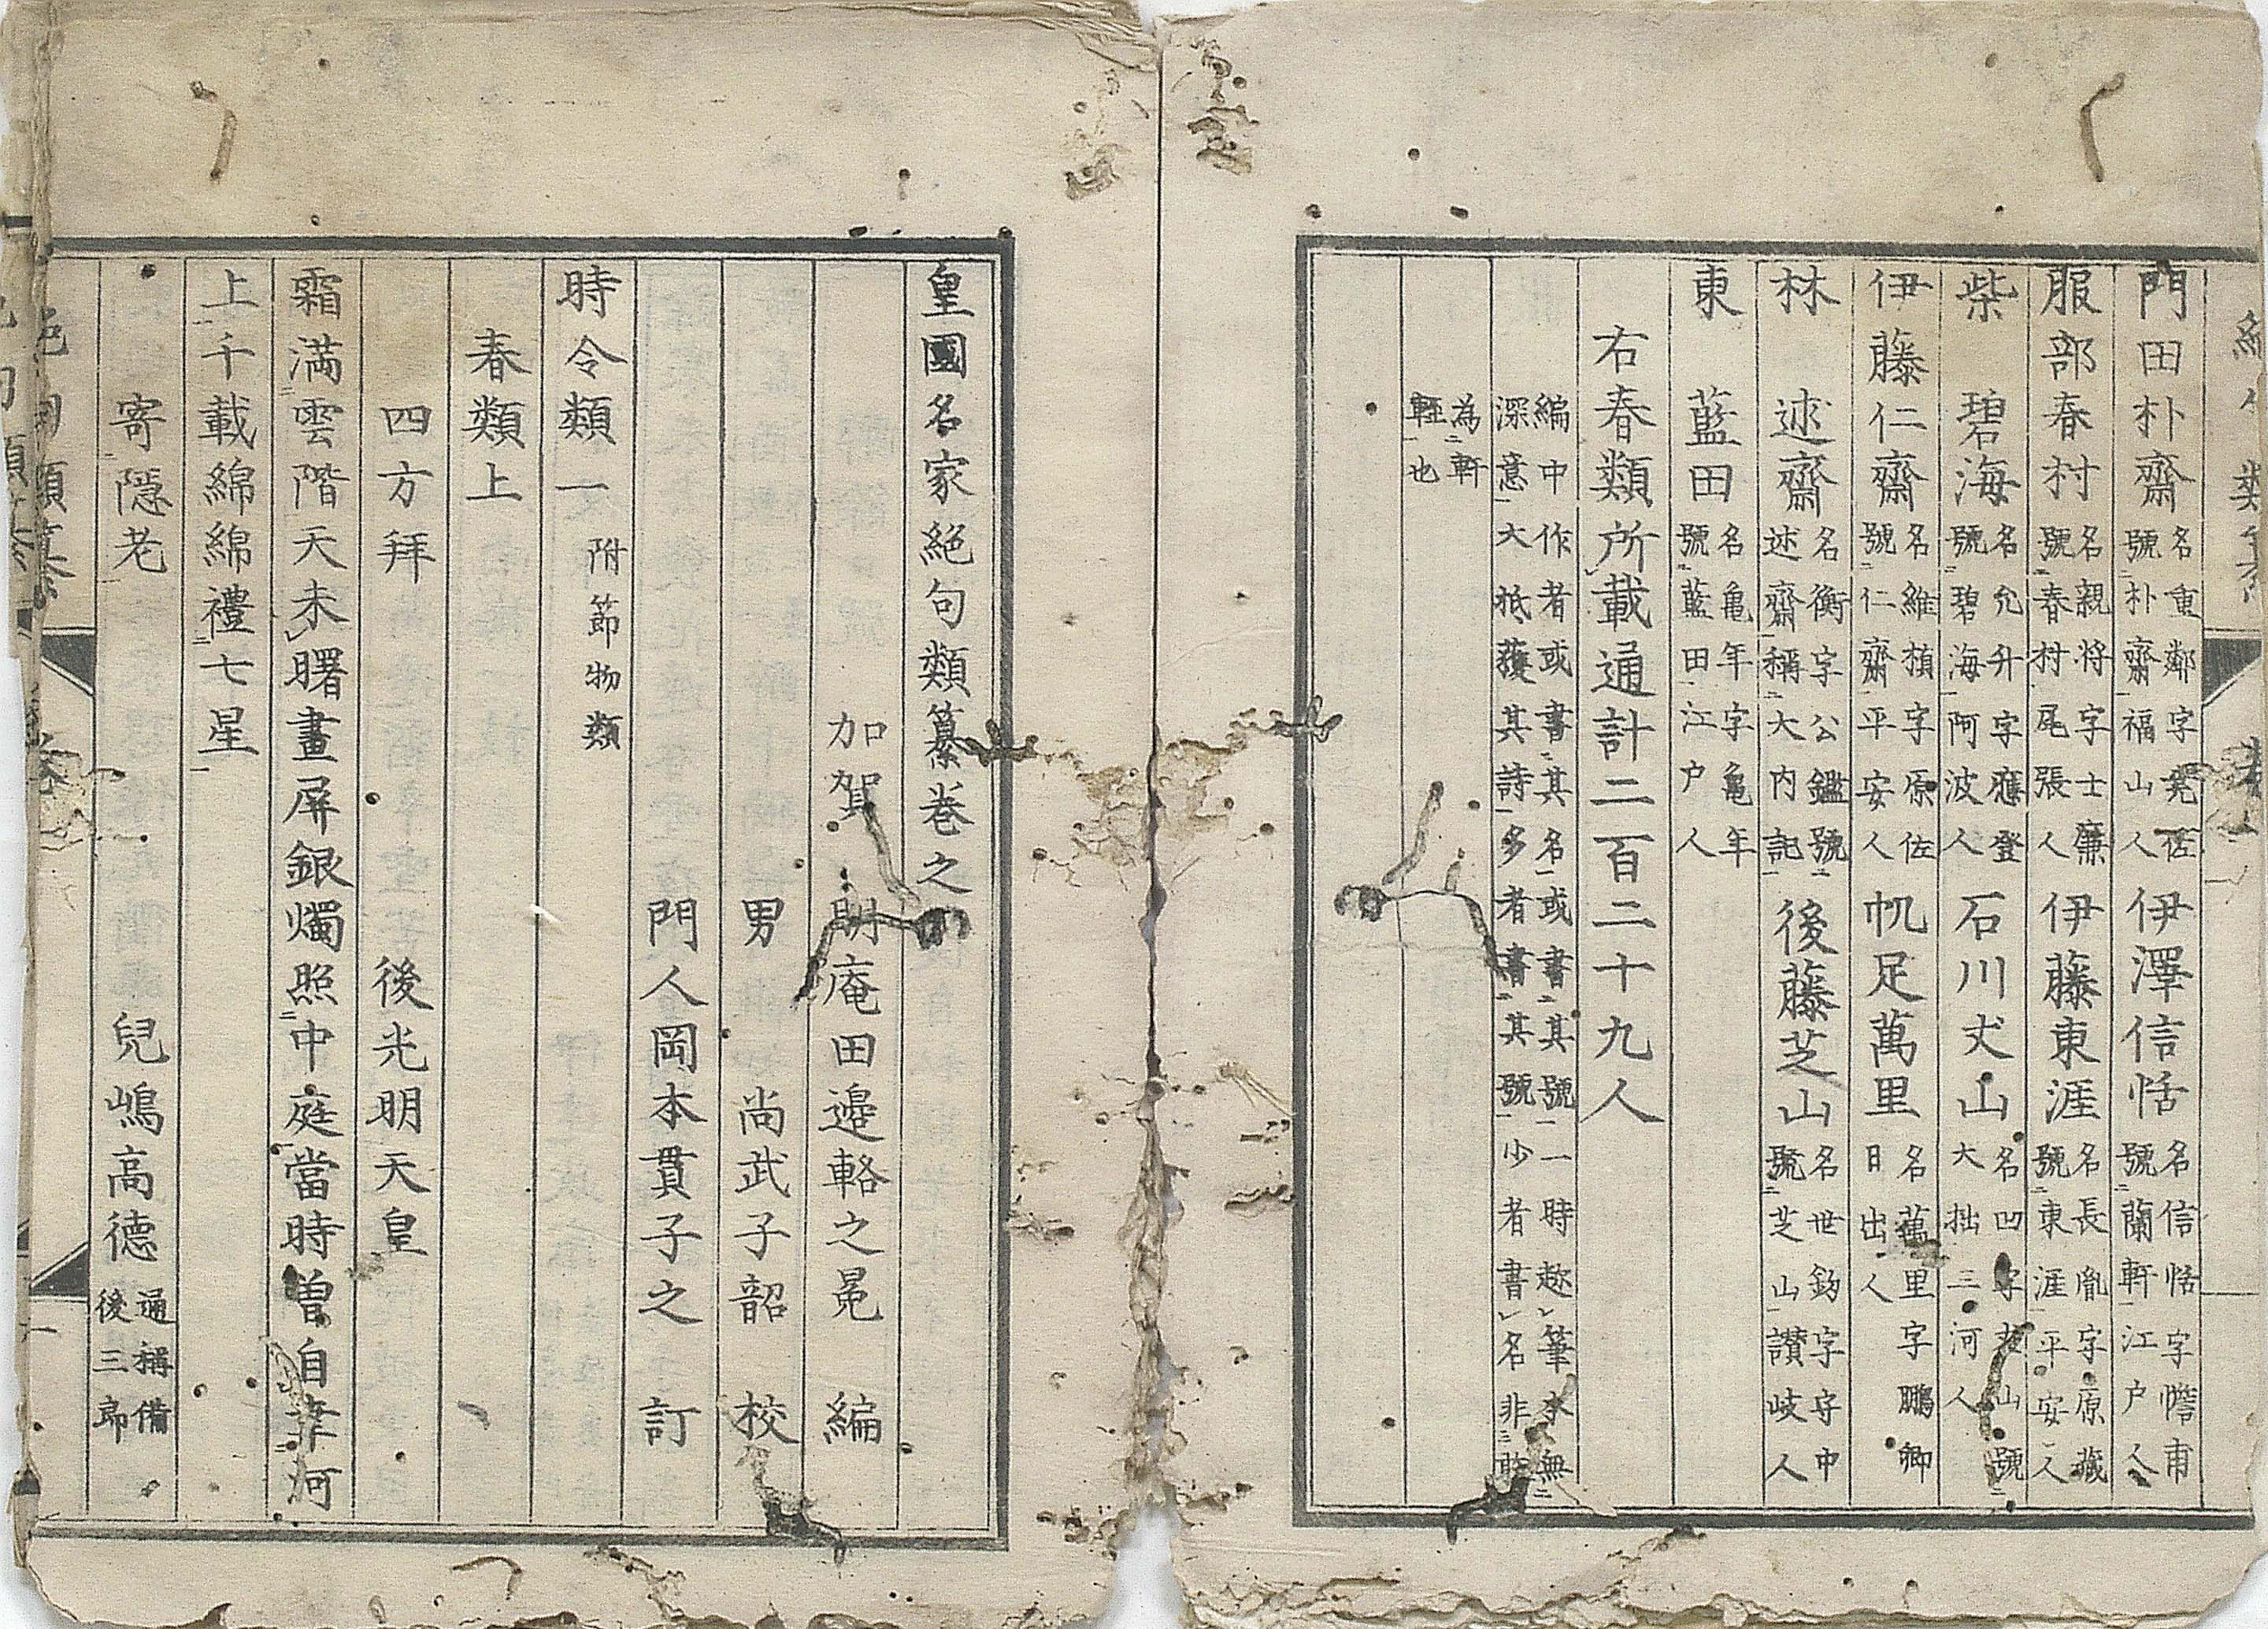 門田朴齋 名重鄰字堯佐號朴齋福山人 伊澤信恬 名信恬字憺甫號蘭軒江戸人
服部春村 名親将字士廉號春村尾張人 伊藤東涯 名長胤字原藏號東涯平安人
柴碧海 名允升字應登號碧海阿波人 石川丈山 名凹字丈山號大拙三河人
伊藤仁齋 名維楨字原佐號仁齋平安人 帆足萬里 名萬里字鵬卿日出人
林述齋 名衡字公鑑號述齋稱大内記 後藤芝山 名世鈞字守中號芝山讃岐人
東藍田 名亀年字亀年號藍田江戸人
右春類所載通計二百二十九人
編中作者或書其名或書其號一時趁筆本無
深意大抵獲其詩多者書其號少者書名非敢
為軒
輊也
皇國名家絶句類纂巻之
加賀 明庵田邉輅之冕 編
男 尚武子韶 校
門人岡本貫子之 訂
時令類一 附節物類
春類上
四方拜 後光明天皇
霜満雲階天未曙畫屏銀燭照中庭當時曽自幸河
上千載綿綿禮七星
寄隠老 兒嶋高德 通稱備後三郎